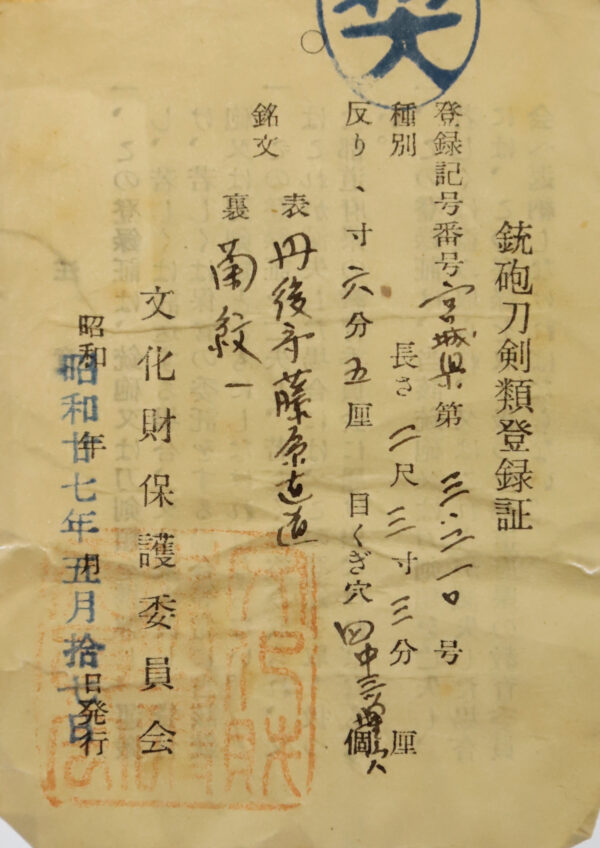 銃砲刀剣類登録証
登録記号番号 宮城県 第 三二一〇 号
種別 長さ 二尺 三寸 三分 厘
反り 、寸 六分 五厘 目くぎ穴 四中三 個
銘文
表 丹後守藤原直道
裏 菊紋一
文化財保護委員会
昭和 年 月 日発行
昭和廿七年五月拾七日